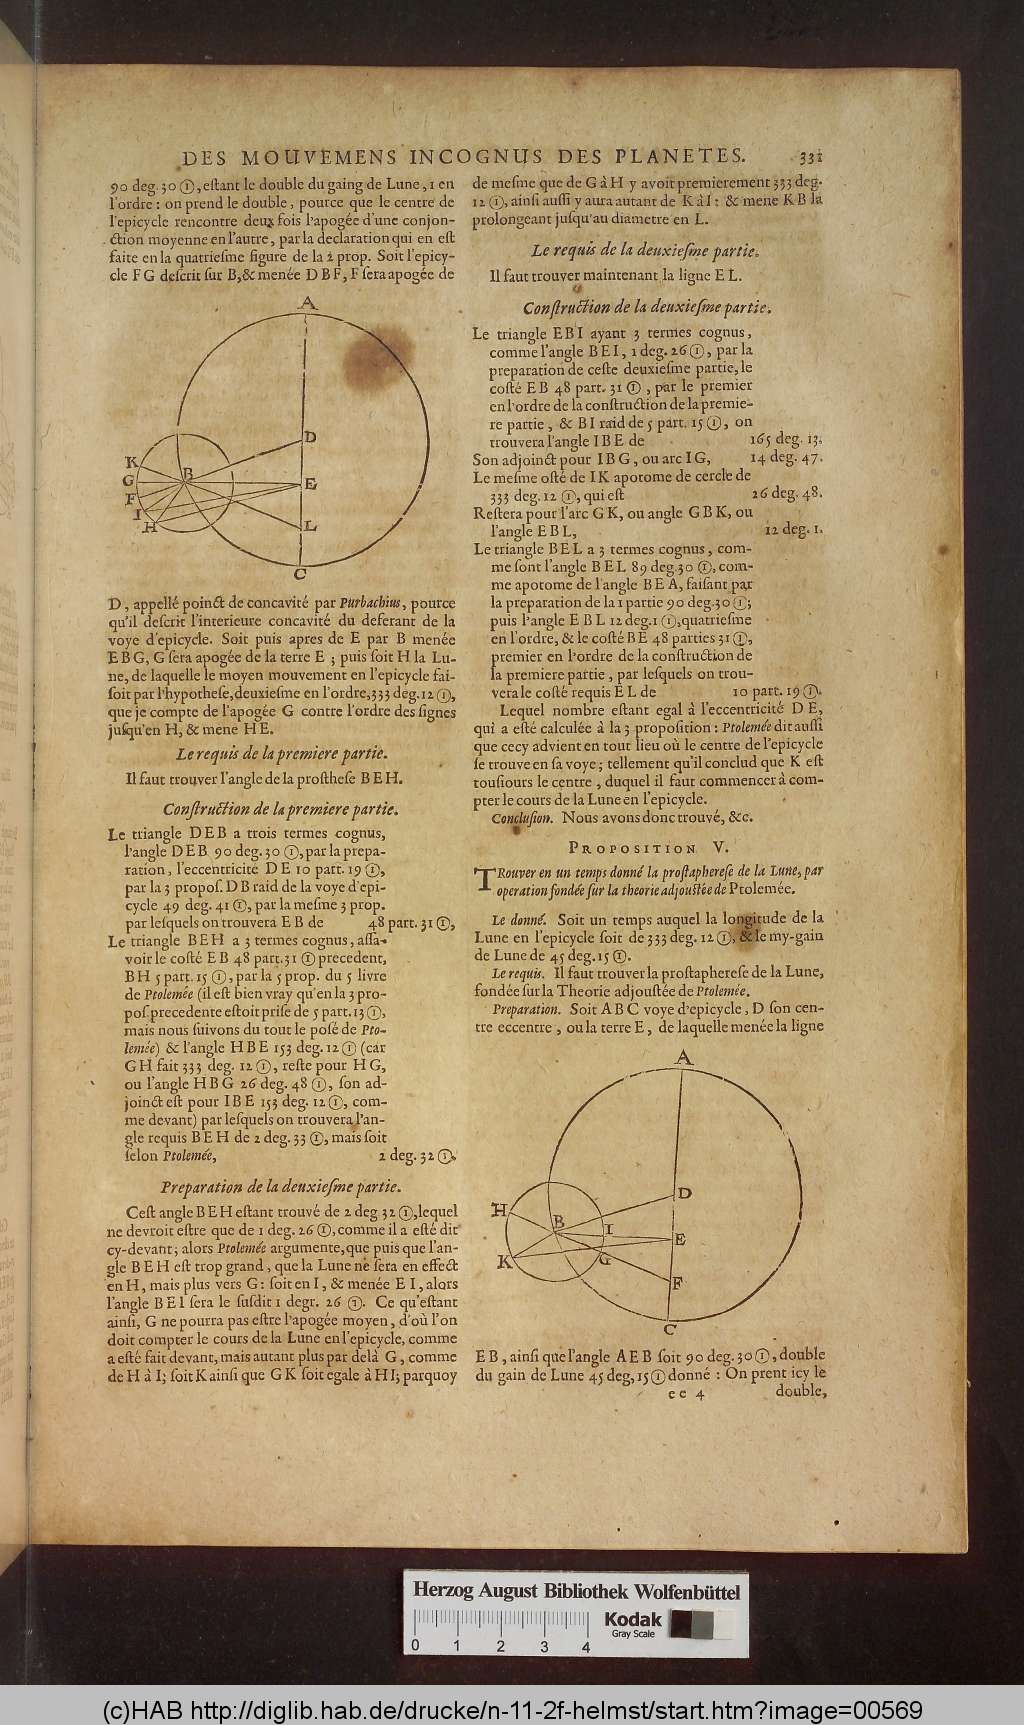 DES MOUVEMENS INCOGNUS DES PLANETES. 331
90 deg. 30 ①, eſtant le double du gaing de Lune, 1 en
l'ordre: on prend le double, pource que le centre de
l'epicycle rencontre deux fois l'apogée d'une conjon-
ction moyenne en l'autre, par la declaration qui en eſt
faite en la quatrieſme figure de la 2 prop. Soit l'epicy-
cle F G deſcrit ſur B, & menée D B F, F ſera apogée de
A
D
K
B
G
E
F
I
H
L
C
D, appellé poinct de concavité par Purbachius, pource
qu'il deſcrit l'interieure concavité du deferant de la
voye d'epicycle. Soit puis apres de E par B menée
E B G, G ſera apogée de la terre E; puis ſoit H la Lu-
ne, de laquelle le moyen mouvement en l'epicycle fai-
ſoit par l'hypotheſe, deuxieſme en l'ordre, 333 deg. 12 ①,
que je compte de l'apogée G contre l'ordre des ſignes
juſqu'en H, & mene H E.
Le requis de la premiere partie.
Il faut trouver l'angle de la proſtheſe B E H.
Conſtruction de la premiere partie.
Le triangle D E B a trois termes cognus,
l'angle D E B 90 deg. 30 ①, par la prepa-
ration, l'eccentricité D E 10 part. 19 ①,
par la 3 propoſ. D B raid de la voye d'epi-
cycle 49 deg. 41 ①, par la meſme 3 prop.
par leſquels on trouvera E B de 48 part. 31 ①,
Le triangle B E H a 3 termes cognus, aſſa-
voir le coſté E B 48 part. 31 ① precedent,
B H 5 part. 15 ①, par la 5 prop. du 5 livre
de Ptolemée (il eſt bien vray qu'en la 3 pro-
poſ. precedente eſtoit priſe de 5 part. 13 ①,
mais nous ſuivons du tout le poſé de Pto-
lemée) & l'angle H B E 153 deg. 12 ① (car
G H fait 333 deg. 12 ①, reſte pour H G,
ou l'angle H B G 26 deg. 48 ①, ſon ad-
joinct eſt pour I B E 153 deg. 12 ①, com-
me devant) par leſquels on trouvera l'an-
gle requis B E H de 2 deg. 33 ①, mais ſoit
ſelon Ptolemée, 2 deg. 32 ①.
Preparation de la deuxieſme partie.
Ceſt angle B E H eſtant trouvé de 2 deg 32 ①, lequel
ne devroit eſtre que de 1 deg. 26 ①, comme il a eſté dit
cy-devant; alors Ptolemée argumente, que puis que l'an-
gle B E H eſt trop grand, que la Lune ne ſera en effect
en H, mais plus vers G: ſoit en I, & menée E I, alors
l'angle B E I ſera le ſuſdit 1 degr. 26 ①. Ce qu'eſtant
ainſi, G ne pourra pas eſtre l'apogée moyen, d'où l'on
doit compter le cours de la Lune en l'epicycle, comme
a eſté fait devant, mais autant plus par delà G, comme
de H à I; ſoit K ainſi que G K ſoit egale à H I; parquoy
de meſme que de G à H y avoit premierement 333 deg.
12 ①, ainſi auſſi y aura autant de K à I: & mene K B la
prolongeant juſqu'au diametre en L.
Le requis de la deuxieſme partie.
Il faut trouver maintenant la ligne E L.
Conſtruction de la deuxieſme partie.
Le triangle E B I ayant 3 termes cognus,
comme l'angle B E I, 1 deg. 26 ①, par la
preparation de ceſte deuxieſme partie, le
coſté E B 48 part. 31 ①, par le premier
en l'ordre de la conſtruction de la premie-
re partie, & B I raid de 5 part. 15 ①, on
trouvera l'angle I B E de 165 deg. 13.
Son adjoinct pour I B G, ou arc I G, 14 deg. 47.
Le meſme oſté de I K apotome de cercle de
333 deg. 12 ①, qui eſt 26 deg. 48.
Reſtera pour l'arc G K, ou angle G B K, ou
l'angle E B L, 12 deg. 1.
Le triangle B E L a 3 termes cognus, com-
me ſont l'angle B E L 89 deg. 30 ①, com-
me apotome de l'angle B E A, faiſant par
la preparation de la 1 partie 90 deg. 30 ①;
puis l'angle E B L 12 deg. 1 ①, quatrieſme
en l'ordre, & le coſté B E 48 parties 31 ①,
premier en l'ordre de la conſtruction de
la premiere partie, par leſquels on trou-
vera le coſté requis E L de 10 part. 19 ①.
Lequel nombre eſtant egal à l'eccentricité D E,
qui a eſté calculée à la 3 propoſition: Ptolemée dit auſſi
que cecy advient en tout lieu où le centre de l'epicycle
ſe trouve en ſa voye; tellement qu'il conclud que K eſt
touſiours le centre, duquel il faut commencer à com-
pter le cours de la Lune en l'epicycle.
Concluſion. Nous avons donc trouvé, &c.
PROPOSITION V.
TRouver en un temps donné la proſtaphereſe de la Lune, par
operation fondée ſur la theorie adjouſtée de Ptolemée.
Le donné. Soit un temps auquel la longitude de la
Lune en l'epicycle ſoit de 333 deg. 12 ①, & le my-gain
de Lune de 45 deg. 15 ①.
Le requis. Il faut trouver la proſtaphereſe de la Lune,
fondée ſur la Theorie adjouſtée de Ptolemée.
Preparation. Soit A B C voye d'epicycle, D ſon cen-
tre eccentre, ou la terre E, de laquelle menée la ligne
A
D
H
B
I
E
K
G
F
C
E B, ainſi que l'angle A E B ſoit 90 deg. 30 ①, double
du gain de Lune 45 deg, 15 ① donné: On prent icy le
ee 4 double,
Herzog August Bibliothek Wolfenbüttel
Kodak
Gray Scale
0 1 2 3 4
(c)HAB http://diglib.hab.de/drucke/n-11-2f-helmst/start.htm?image=00569